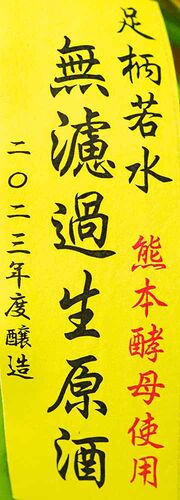 足柄若水 熊本酵母使用
無濾過生原酒
二〇二三年度醸造